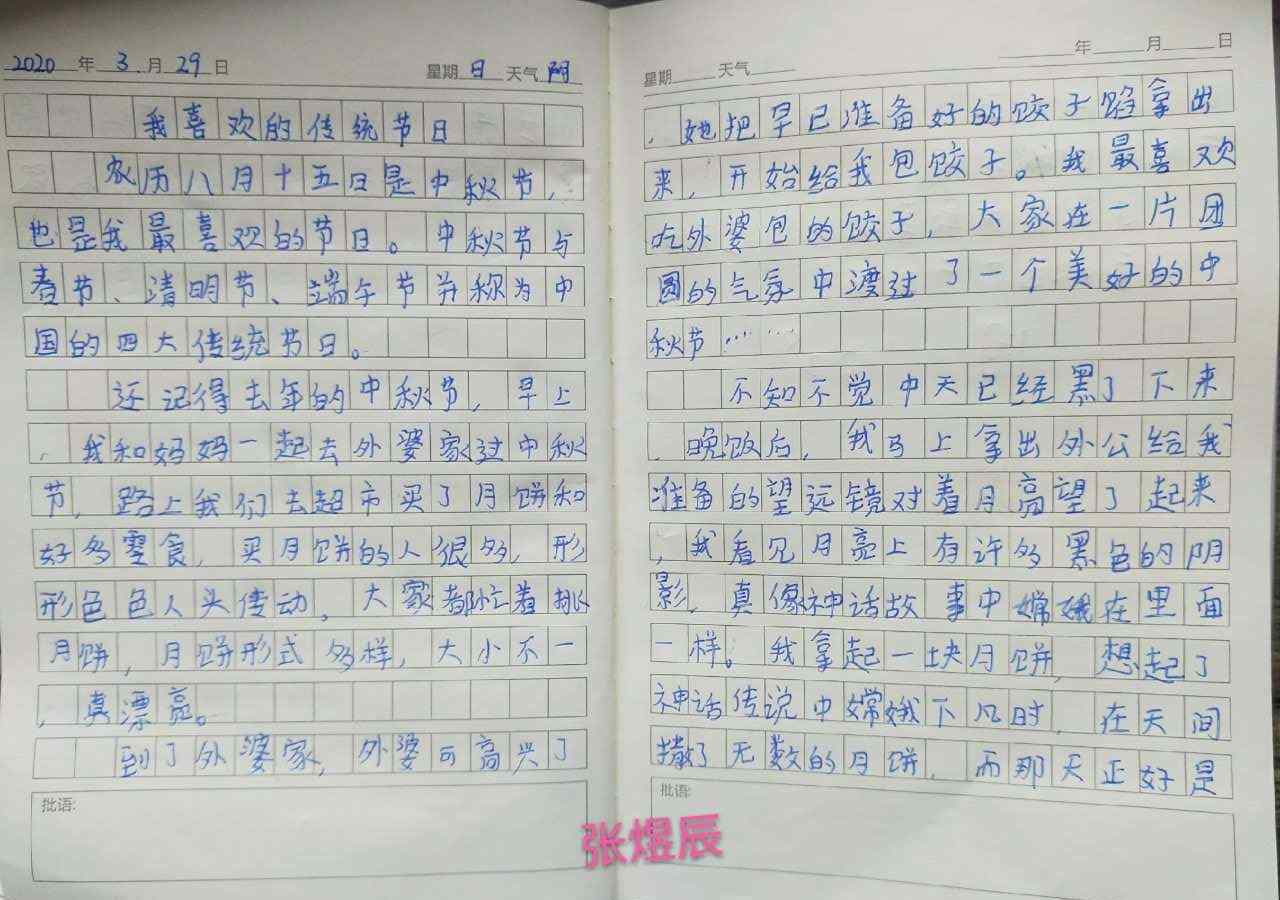 2020年3月29日 星期日 天气阴
我喜欢的传统节日
农历八月十五日是中秋节，
也是我最喜欢的节日。中秋节与
春节、清明节、端午节并称为中
国的四大传统节日。
还记得去年的中秋节，早上
，我和妈妈一起去外婆家过中秋
节，路上我们去超市买了月饼和
好多零食，买月饼的人很多，形
形色色人头传动，大家都忙着挑
月饼，月饼形式多样，大小不一
，真漂亮。
到了外婆家，外婆可高兴了
批语：
星期 天气 年 月 日
，她把早已准备好的饺子馅拿出
来，开始给我包饺子。我最喜欢
吃外婆包的饺子，大家在一片团
圆的气氛中渡过了一个美好的中
秋节……
不知不觉中天已经黑了下来
，晚饭后，我马上拿出外公给我
准备的望远镜对着月亮望了起来
，我看见月亮上有许多黑色的阴
影，真像神话故事中嫦娥在里面
一样。我拿起一块月饼，想起了
神话传说中嫦娥下凡时，在天间
撒了无数的月饼，而那天正好是
批语：
张煜辰